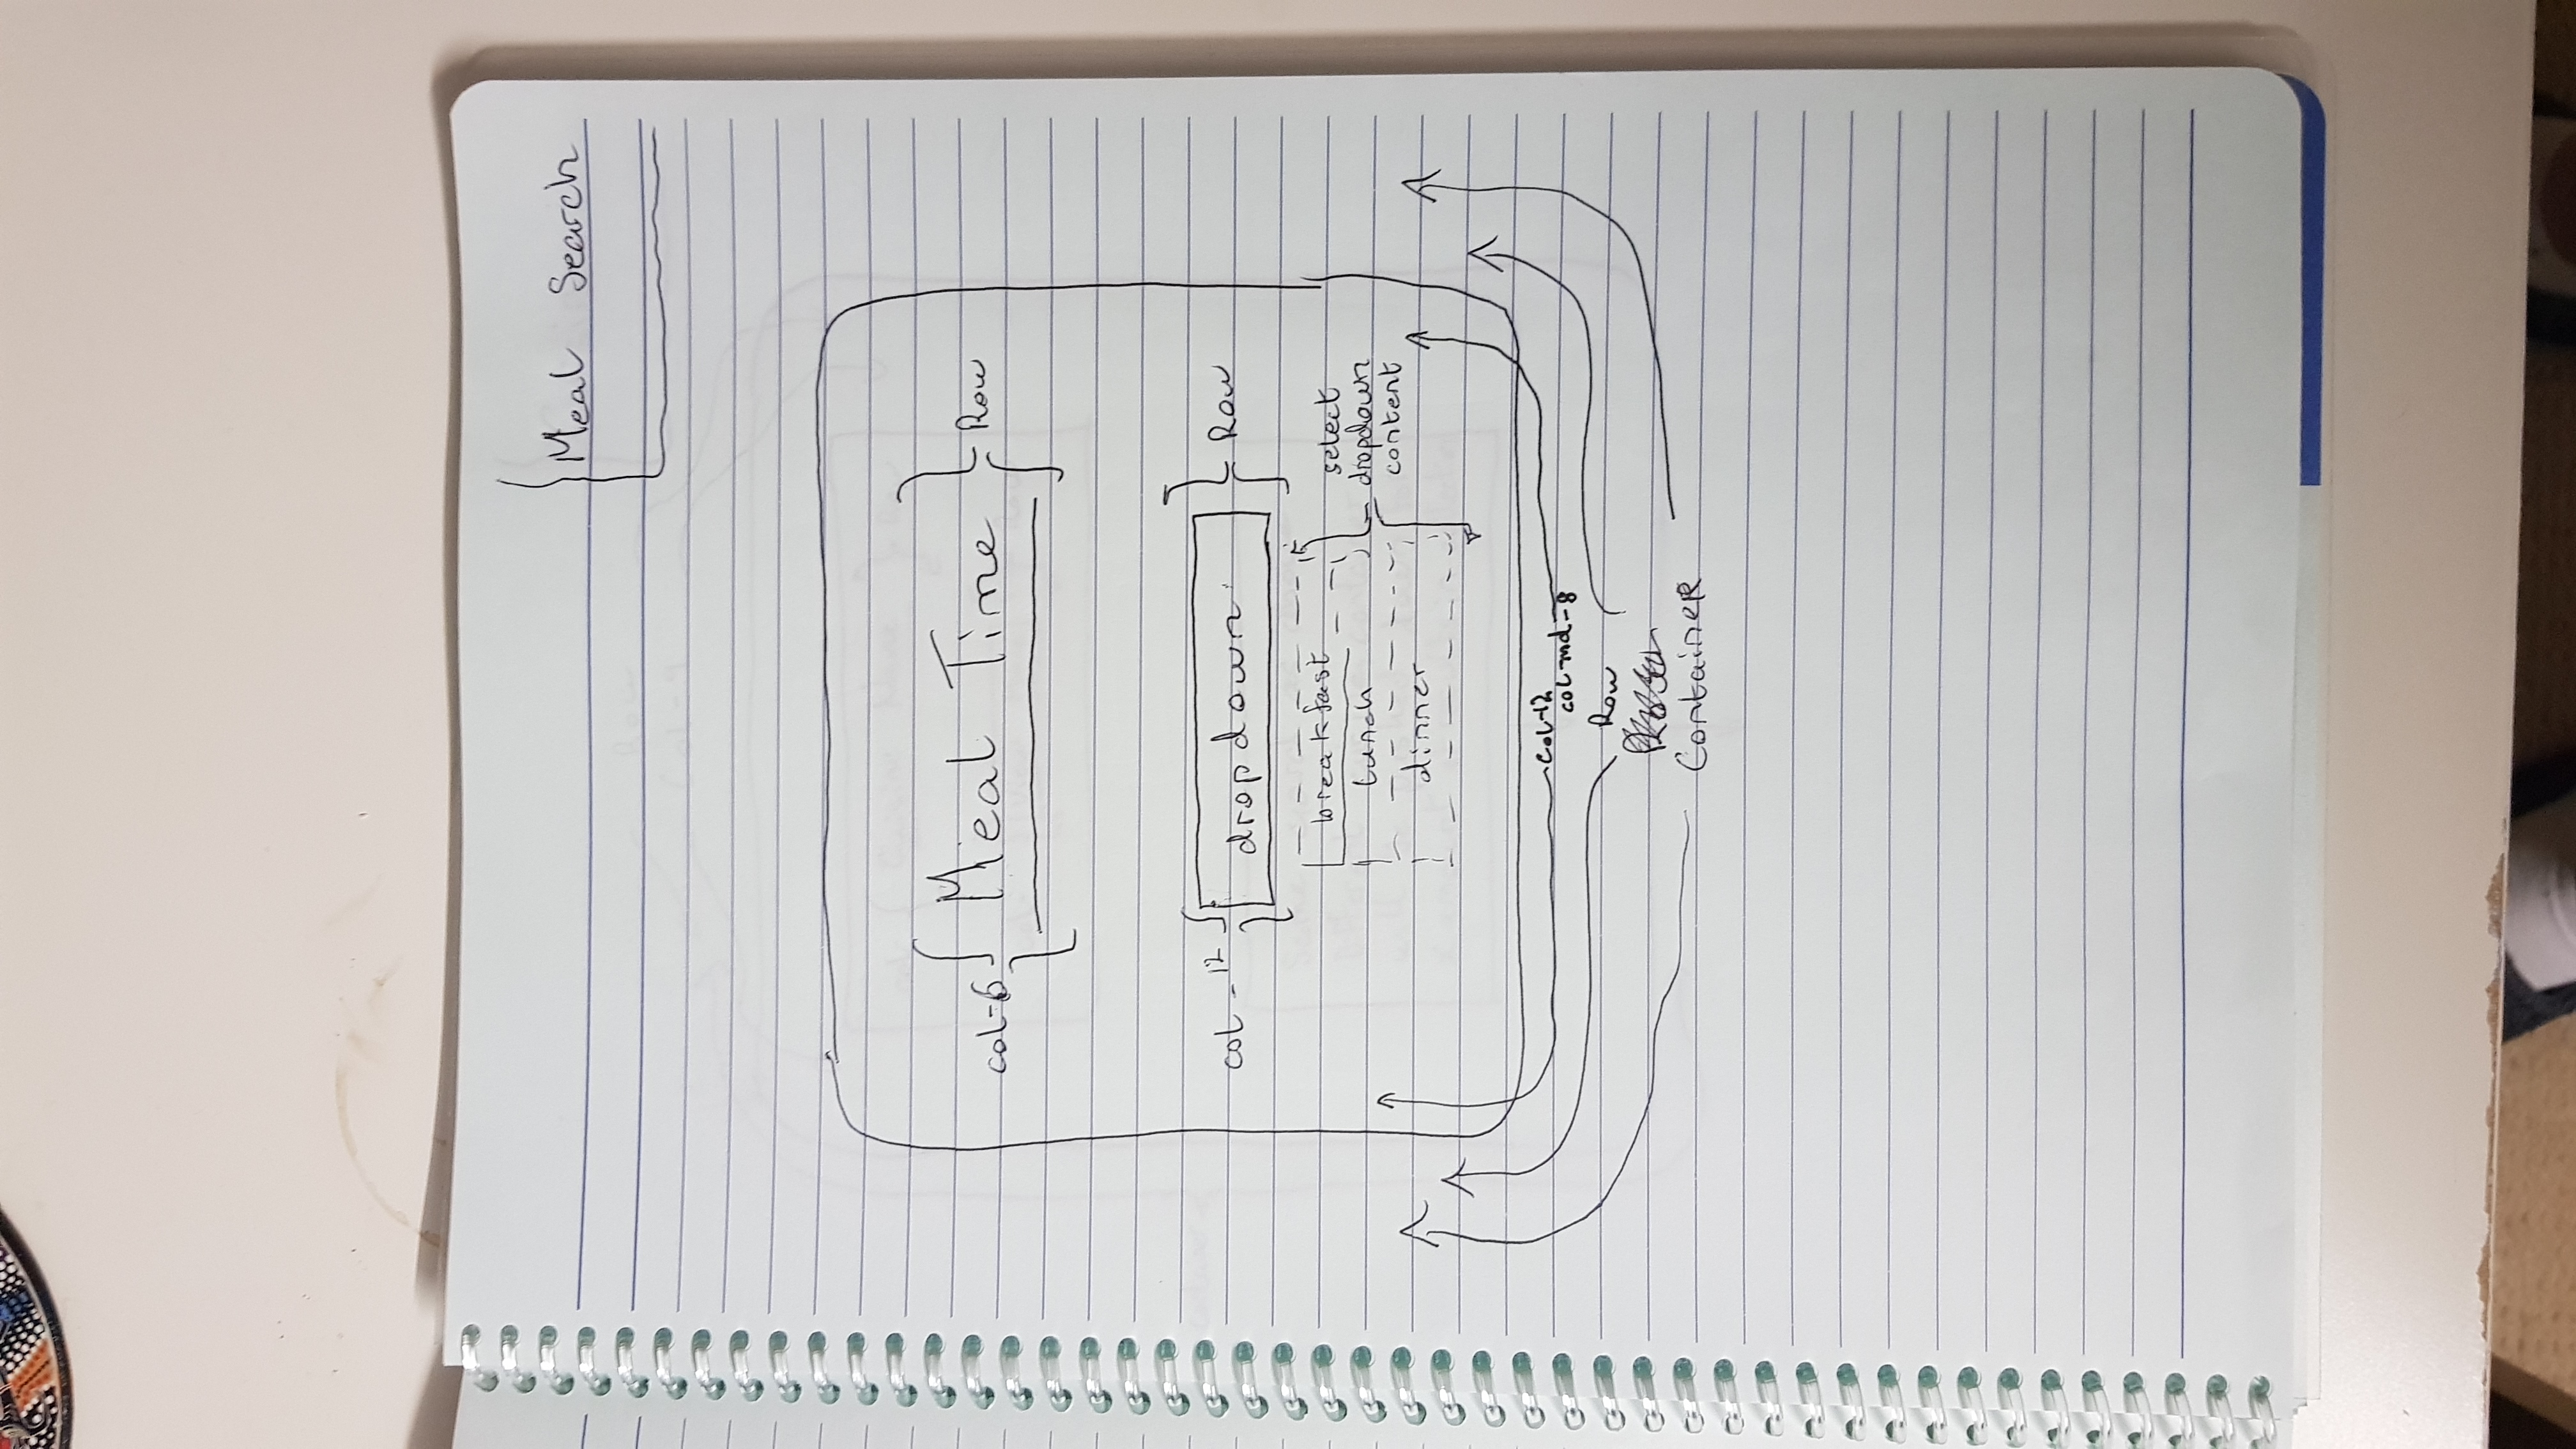 Meal Search
col-6 Meal Time Row
col-12 dropdown Row
breakfast
lunch
dinner
select
dropdown
content
col-12
col-md-8
Row
Container